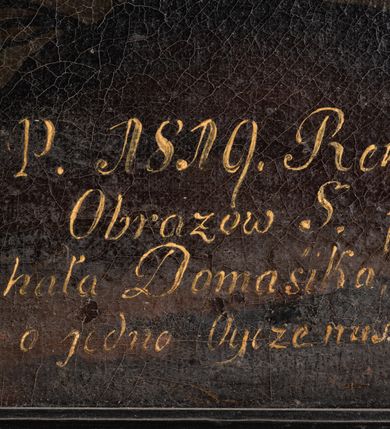 P. 1819. Ren
Obrazów S.
hała Domaśika,
o jedno Oyczenas